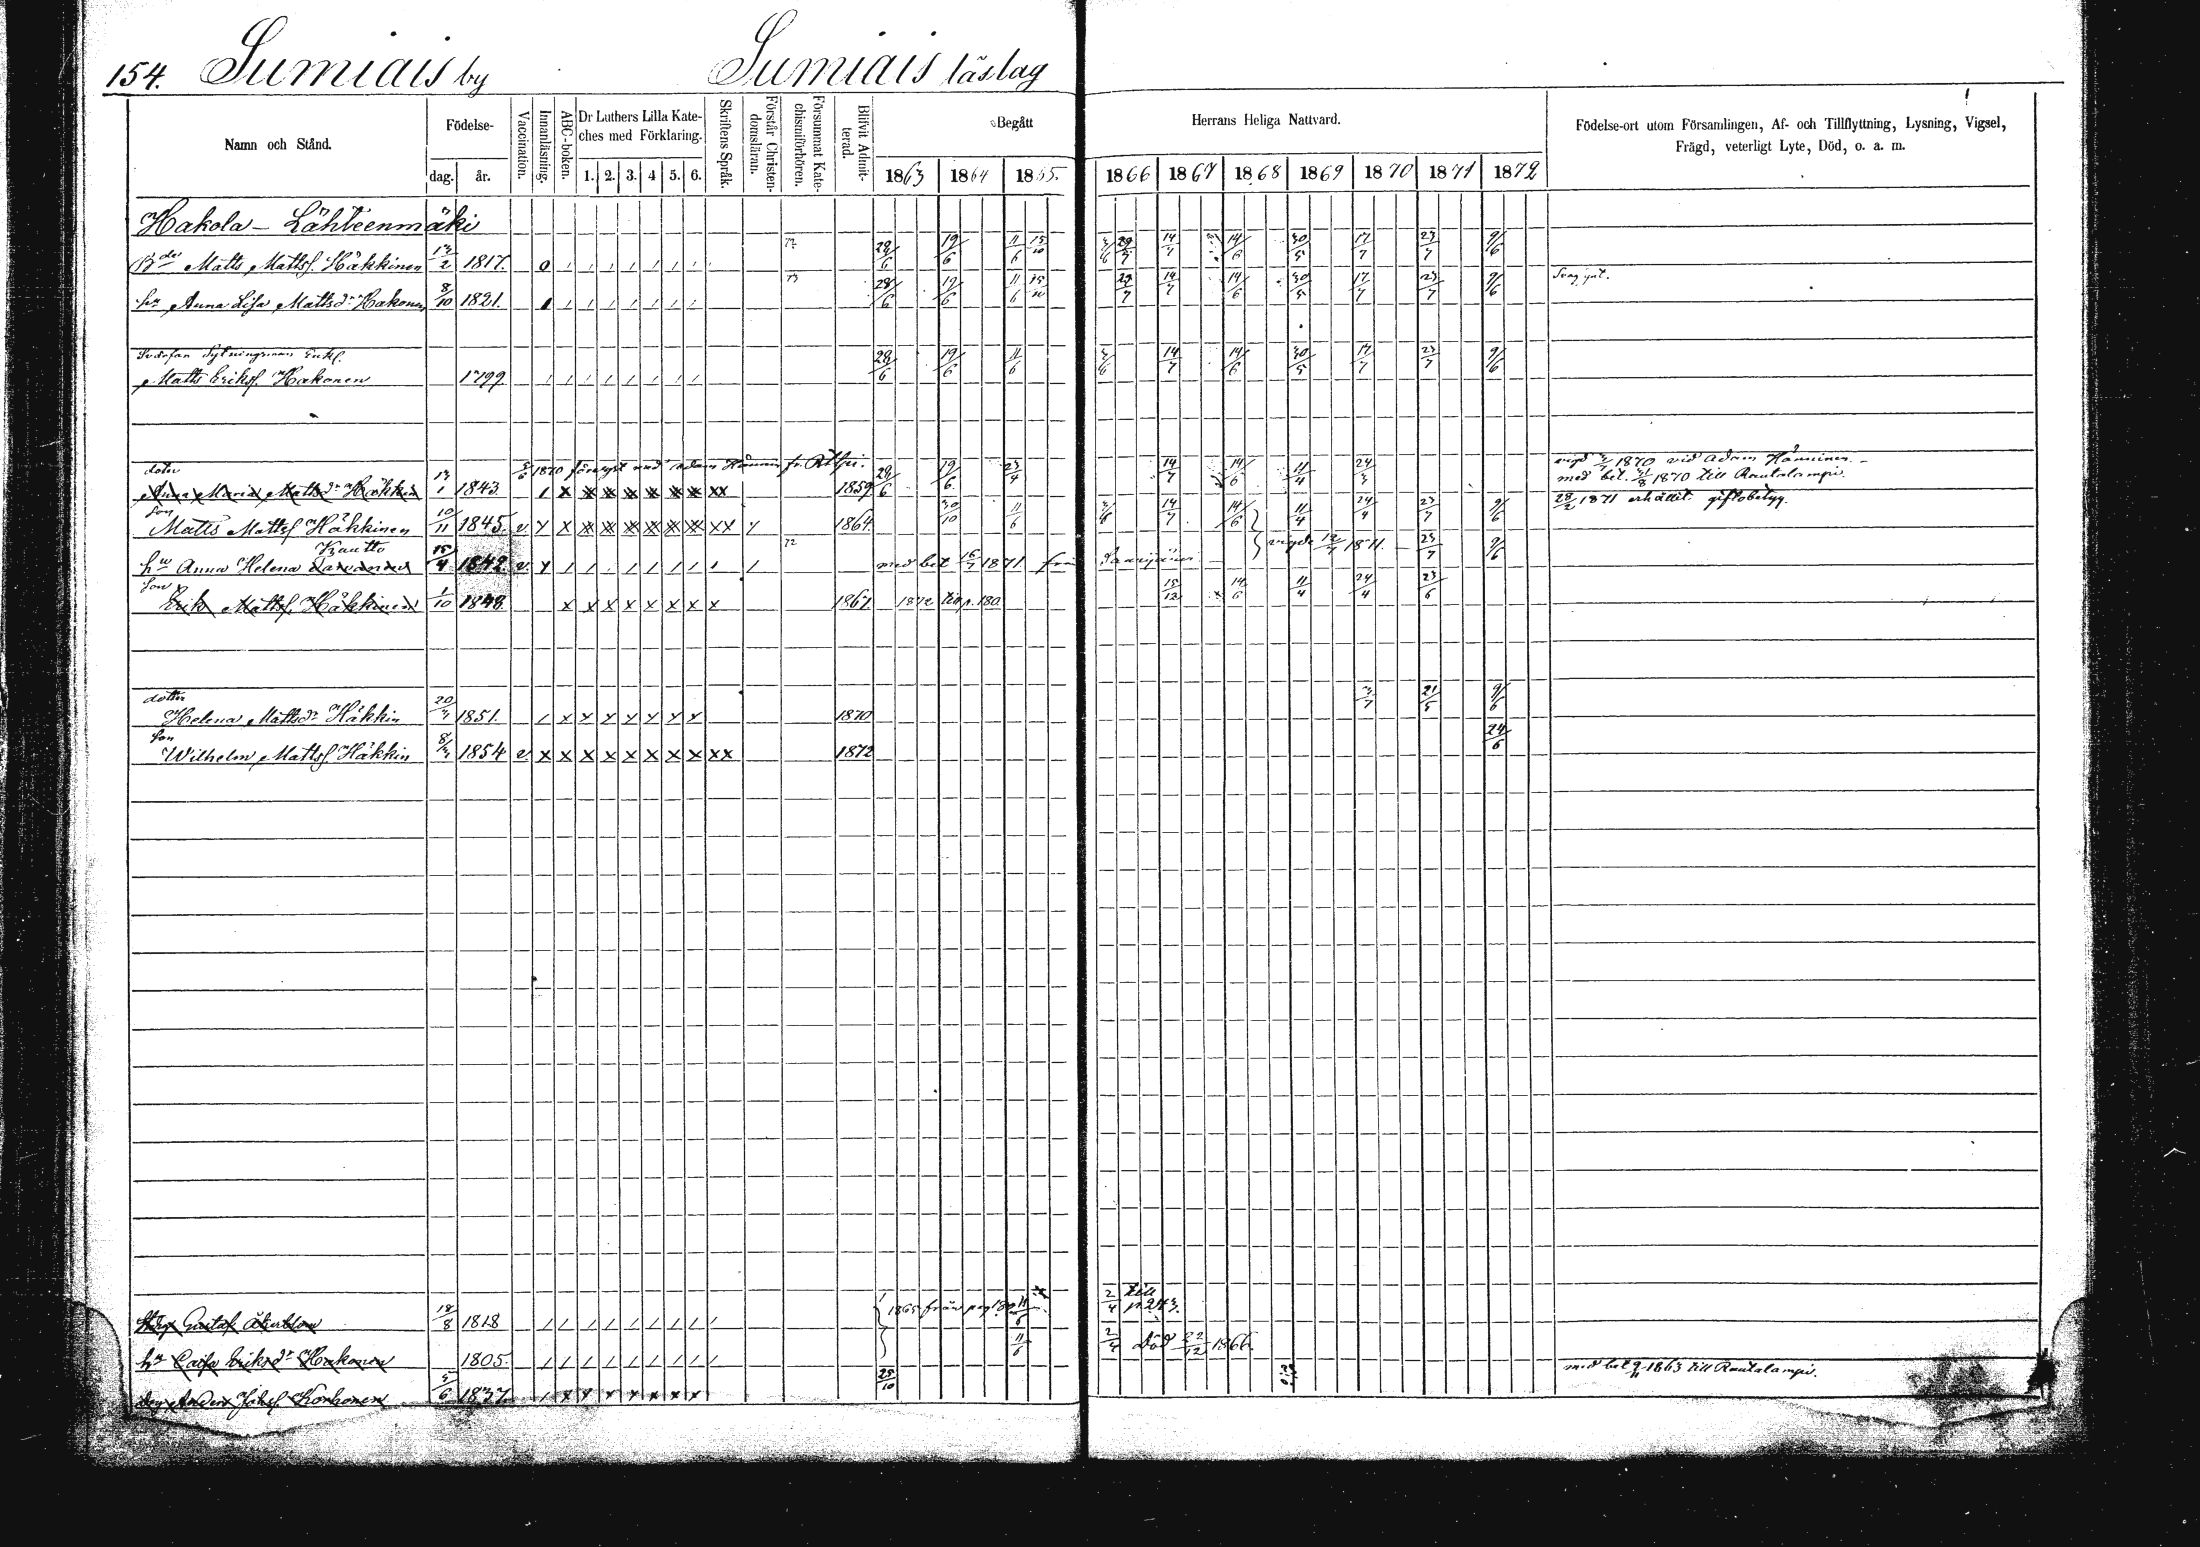 154. Sumiais by Sumiais läslag
Namn och Stånd.
Födelse-
dag. år.
Vaccination.
Innanläsning.
ABC-boken.
Dr Luthers Lilla Kate-
ches med Förklaring.
1. 2. 3. 4 5. 6.
Skriftens Språk.
Förstår Christen-
domsläran.
Försummat Kate-
chismiförhören.
Blifvit Admit-
terad.
Begått
1863 1864 1865.
Herrans Heliga Nattvard.
1866 1867 1868 1869 1870 1871 1872
Födelse-ort utom Församlingen, Af- och Tillflyttning, Lysning, Vigsel,
Frägd, veterligt Lyte, Död, o. a. m.
Hakola - Lähteenmäki
Matts Mattsf. Häkkinen 13/2 1817. 28/6 19/6 11/6 15/10 3/6 29/7 14/7 14/6 30/5 17/7 23/7 9/6
Anna Lisa Mattsdr Hakonen 8/10 1821. 28/6 19/6 11/6 15/10 29/7 14/7 14/6 30/5 17/7 23/7 9/6
Matts Eriksf. Hakonen 1799 28/6 19/6 11/6 3/6 14/7 14/6 30/5 17/7 23/7 9/6
doter 1870 fr.
Anna Maria Mattsdr Häkkin 1843. 1859. 28/6 19/6 23/4 14/7 14/6 11/4 24/3 1870 vid Adam Hänninen. -
med bet. 31/8 1870 till Rautalampi.
son
Matts Mattsf Häkkinen 10/11 1845. v. 1864 30/10 11/6 3/6 14/7 14/6 11/4 24/4 23/7 9/6 28/2 1871 erhållit giftobetyg.
Kautto
Anna Helena 15/4 1842. v. 72 med bet 16/7 1871 vigde 12/7 1871. 23/7 9/6
son
Erik Mattsf. Häkkinen 1/10 1848. 1867. 1872 till p. 180 15/12 14/6 11/4 24/4 23/6
dotter
Helena Mattsdr Häkkin 1851. 1870 3/7 21/5 9/6
son
Wilhelm Mattsf Häkkin 1854 v. 1872 24/6
Gustaf Åkerblom 18/8 1818 1865 från pag. 11/6 2/4 till
p 243.
Caisa Eriksdr Hakonen 1805. 11/6 2/4 Död 22/12 1866.
Anders Johsf. Korhonen 5/6 1837. 25/10 med bet 1863 till Rautalampi.